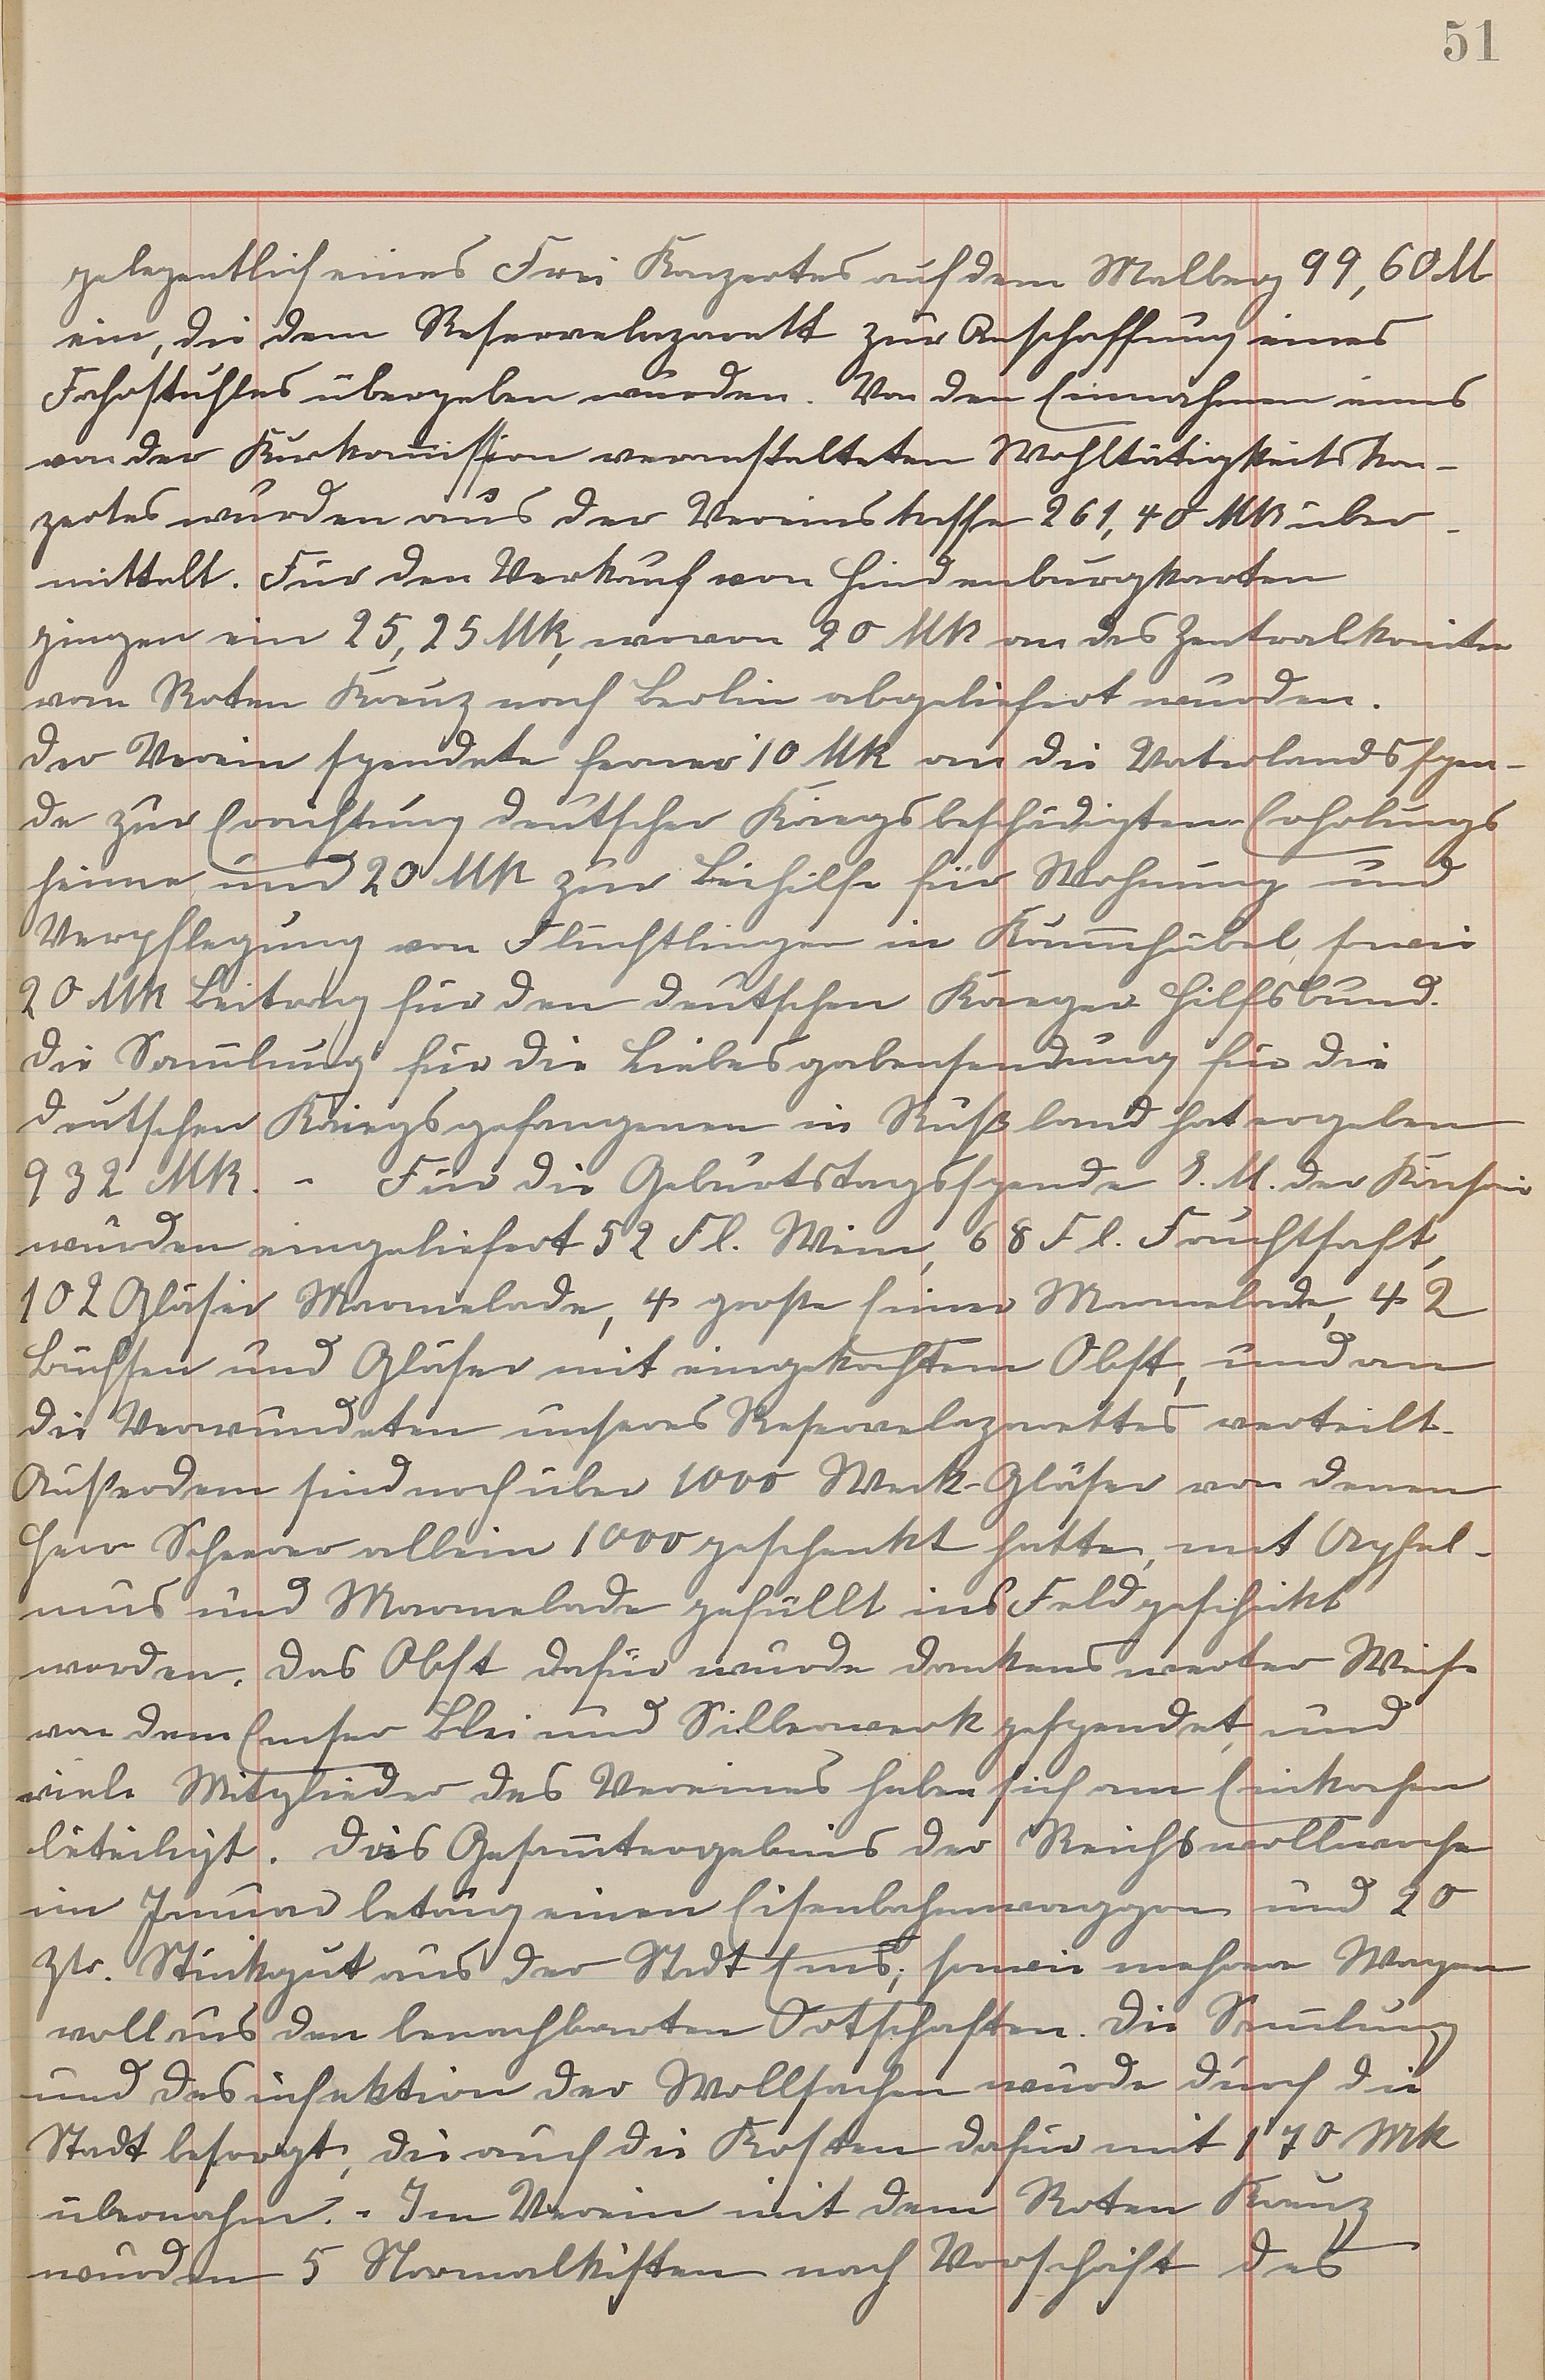 51
gelegentlich eines Frei Konzertes auf dem Malberg 99,60 M
ein, die dem Reservelazarett zur Anschaffung eines
Fahrstuhles übergeben wurden. Von den Einnahmen eines
von der Kurkommission veranstalteten Wohltätigkeitskon-
zertes wurden aus der Vereinskasse 261,40 Mk über-
mittelt. Für den Verkauf von Hindenburgkarten
gingen ein 25,25 Mk, wovon 20 Mk an das Zentralkomitee
vom Roten Kreuz nach Berlin abgeliefert wurden.
Der Verein spendete ferner 10 Mk an die Vaterlandsspen-
de zur Errichtung deutscher Kriegsbeschädigten-Erholungs
heime und 20 Mk zur Beihilfe für Wohnung und
Verpflegung von Flüchtlingen in Krummhübel, sowie
20 Mk Beitrag für den deutschen Krieger Hilfsbund.
Die Sam̄lung für die Liebesgabensendung für die
deutschen Kriegsgefangenen in Rußland hat ergeben
932 Mk. - Für die Geburtstagsspende I. M. der Kaiserin
wurden eingeliefert 52 Fl. Wein, 68 Fl. Fruchtsaft,
102 Gläser Marmelade, 4 große Eimer Marmelade, 42
Büchsen und Gläser mit eingekochtem Obst, und an
die Verwundeten unseres Reservelazarettes verteilt.
Außerdem sind noch über 1000 Weck-Gläser von denen
Herr Scherer allein 1000 geschenkt hatte, mit Apfel-
mus und Marmelade gefüllt ins Feld geschickt
worden. Das Obst dafür wurde dankenswerter Weise
von dem Emser Blei und Silberwerk gespendet, und
viele Mitglieder des Vereines haben sich am Einkochen
beteiligt. Das Gesam̄tergebnis der Reichswollwoche
im Januar betrug einen Eisenbahnwaggon und 20
Ztr. Stückgut aus der Stadt Ems, sowie mehrere Wagen
voll aus den benachbarten Ortschaften. Die Sam̄lung
und Desinfektion der Wollsachen wurde durch die
Stadt besorgt, die auch die Kosten dafür mit 170 Mrk
übernahm. - Im Verein mit dem Roten Kreuz
wurden 5 Normalkisten nach Vorschrift des